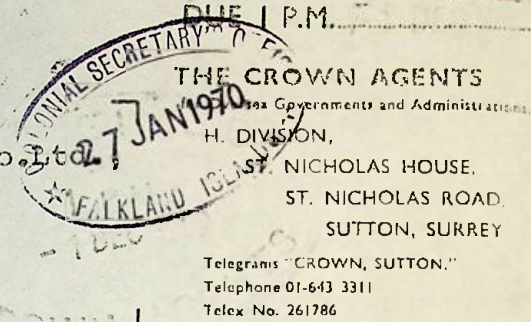 DUE 1 P.M.
COLONIAL SECRETARY'S
27 JAN 1970
FALKLAND ISLANDS
o. Ltd.,
- 1 DEC
THE CROWN AGENTS
Governments and Administrations,
H. DIVISION,
ST. NICHOLAS HOUSE,
ST. NICHOLAS ROAD,
SUTTON, SURREY
Telegrams "CROWN, SUTTON."
Telephone 01-643 3311
Telex No. 261786